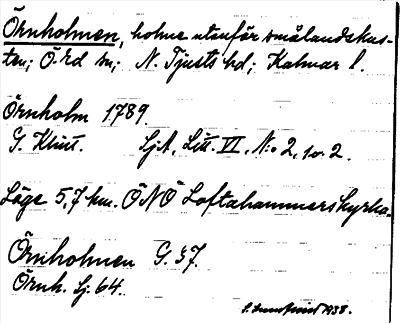 Örnholmen, holme utanför smålandskus-
ten; Ö. Ed sn; N. Tjusts hd; Kalmar l.
Örnholm 1789.
G. Klint. Sj.A, Litt. VI, N:o 2, 1o. 2.
Läge 5,7 km. ÖNÖ Loftahammars kyrka.
Örnholmen G. 37.
Örnh. Sj. 64.
1938.